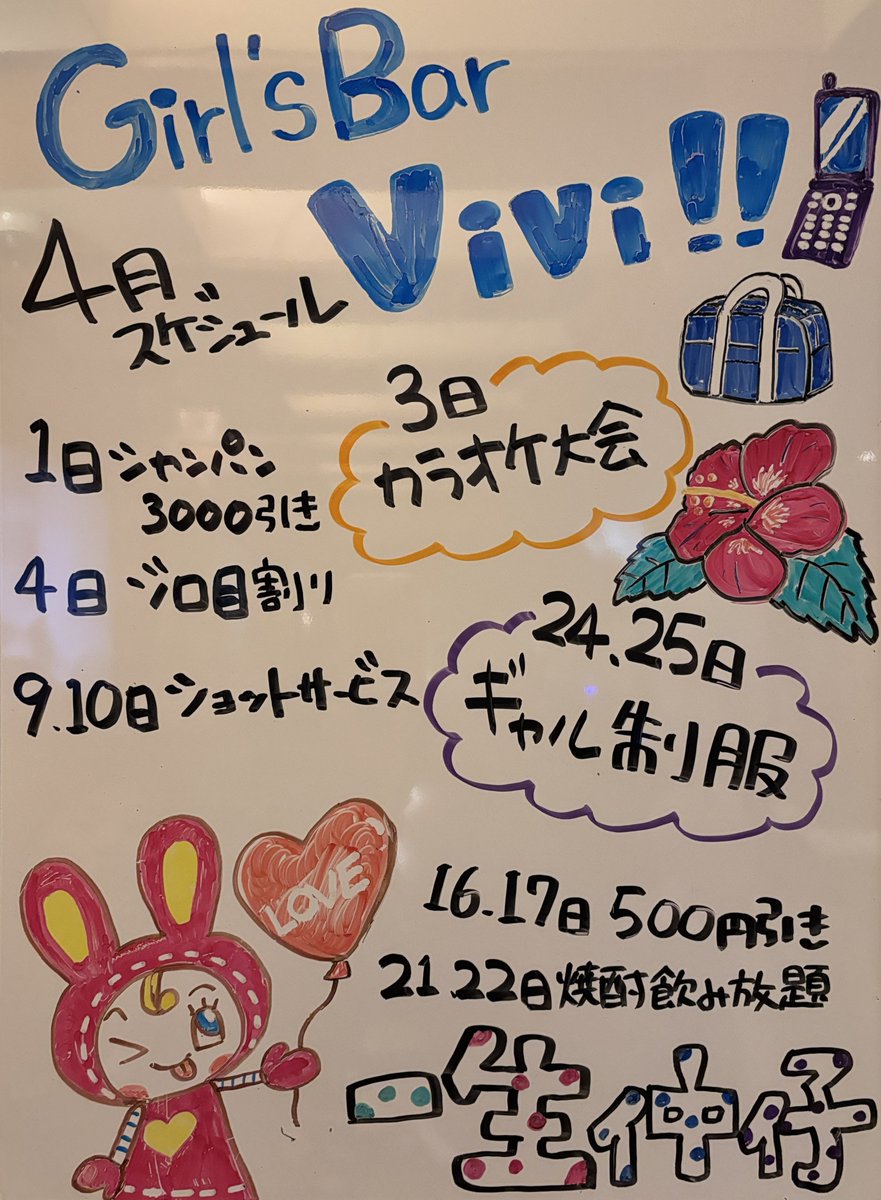 Girl's Bar
ViVi!!
4月
スケジュール
3日
カラオケ大会
1日シャンパン
3000引き
4日 ゾロ目割り
24.25日
ギャル制服
9.10日ショットサービス
LOVE
16.17日 500円引き
21.22日焼酎飲み放題
一生仲仔